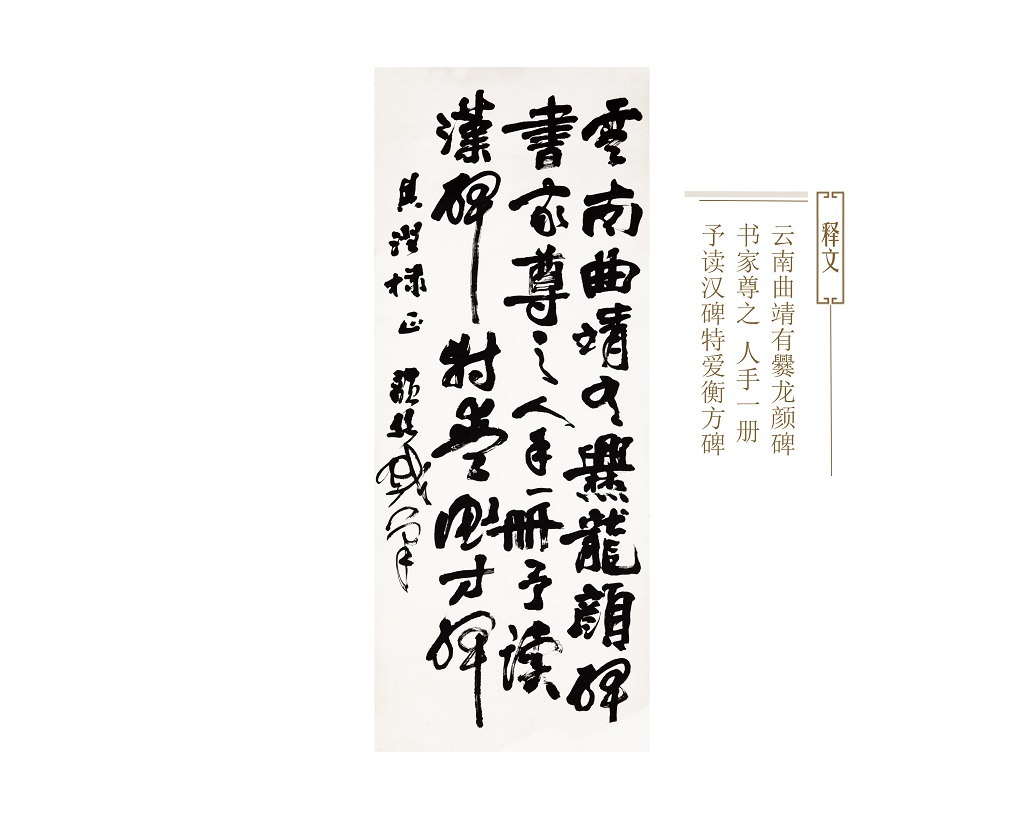 雲南曲靖有爨龍顔碑
書家尊之人手一册予读
漢碑特爱衡方碑
释文
云南曲靖有爨龙颜碑
书家尊之 人手一册
予读汉碑特爱衡方碑